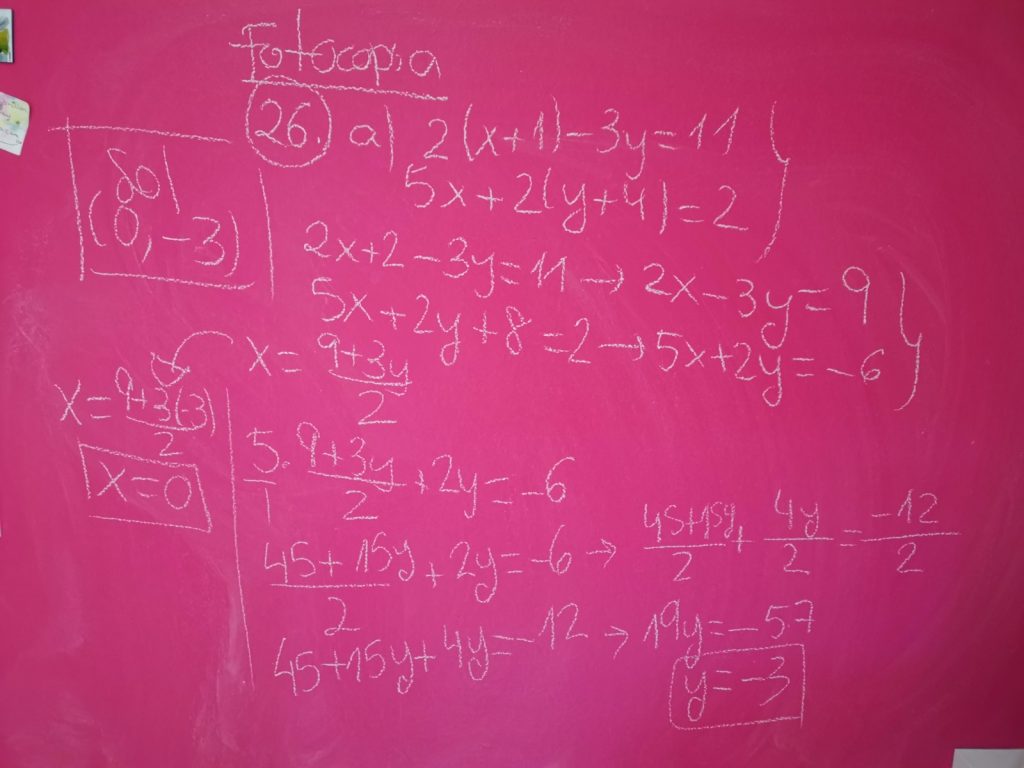 Fotocopia
26. a) 2(x+1)-3y=11
5x+2(y+4)=2
2x+2-3y=11→2x-3y=9
5x+2y+8=2→5x+2y=-6
x=(9+3y)/2
5/1·(9+3y)/2+2y=-6
(45+15y)/2+2y=-6→(45+15y)/2+4y/2=-12/2
45+15y+4y=-12→19y=-57
y=-3
x=(9+3(-3))/2
x=0
Sol
(0,-3)